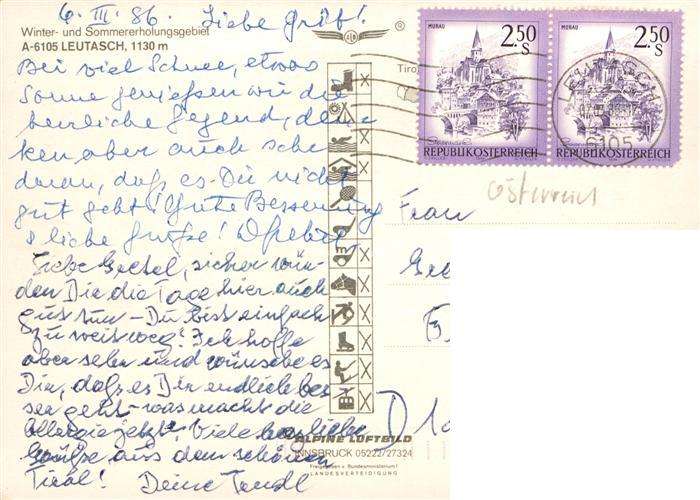 6. III. 86. Liebe
Winter- und Sommererholungsgebiet
A-6105 LEUTASCH, 1130 m
Bei viel Schnee, etwas
Sonne genießen wir die
herrliche Gegend, den-
ken aber auch sehr
daran, daß es Dir nicht
gut geht! Gute Besserung
& liebe Grüße!
Liebe Gretel, sicher wür-
den Dir die Tage hier auch
gut tun - Du bist einfach
zu weit weg! Ich hoffe
aber sehr und wünsche es
Dir, daß es Dir endlich bes
ser geht - was macht die
Allergie jetzt? Viele herzliche
Grüße aus dem schönen
Tirol! Deine
Tiro
MURAU
2.50
S
REPUBLIK ÖSTERREICH
MURAU
2.50
S
REPUBLIK ÖSTERREICH
LEUTASCH
6105
Österreich
Frau
D
ALPINE LUFTBILD
INNSBRUCK 05222/27324
Freigegeben v. Bundesministerium f.
LANDESVERTEIDIGUNG